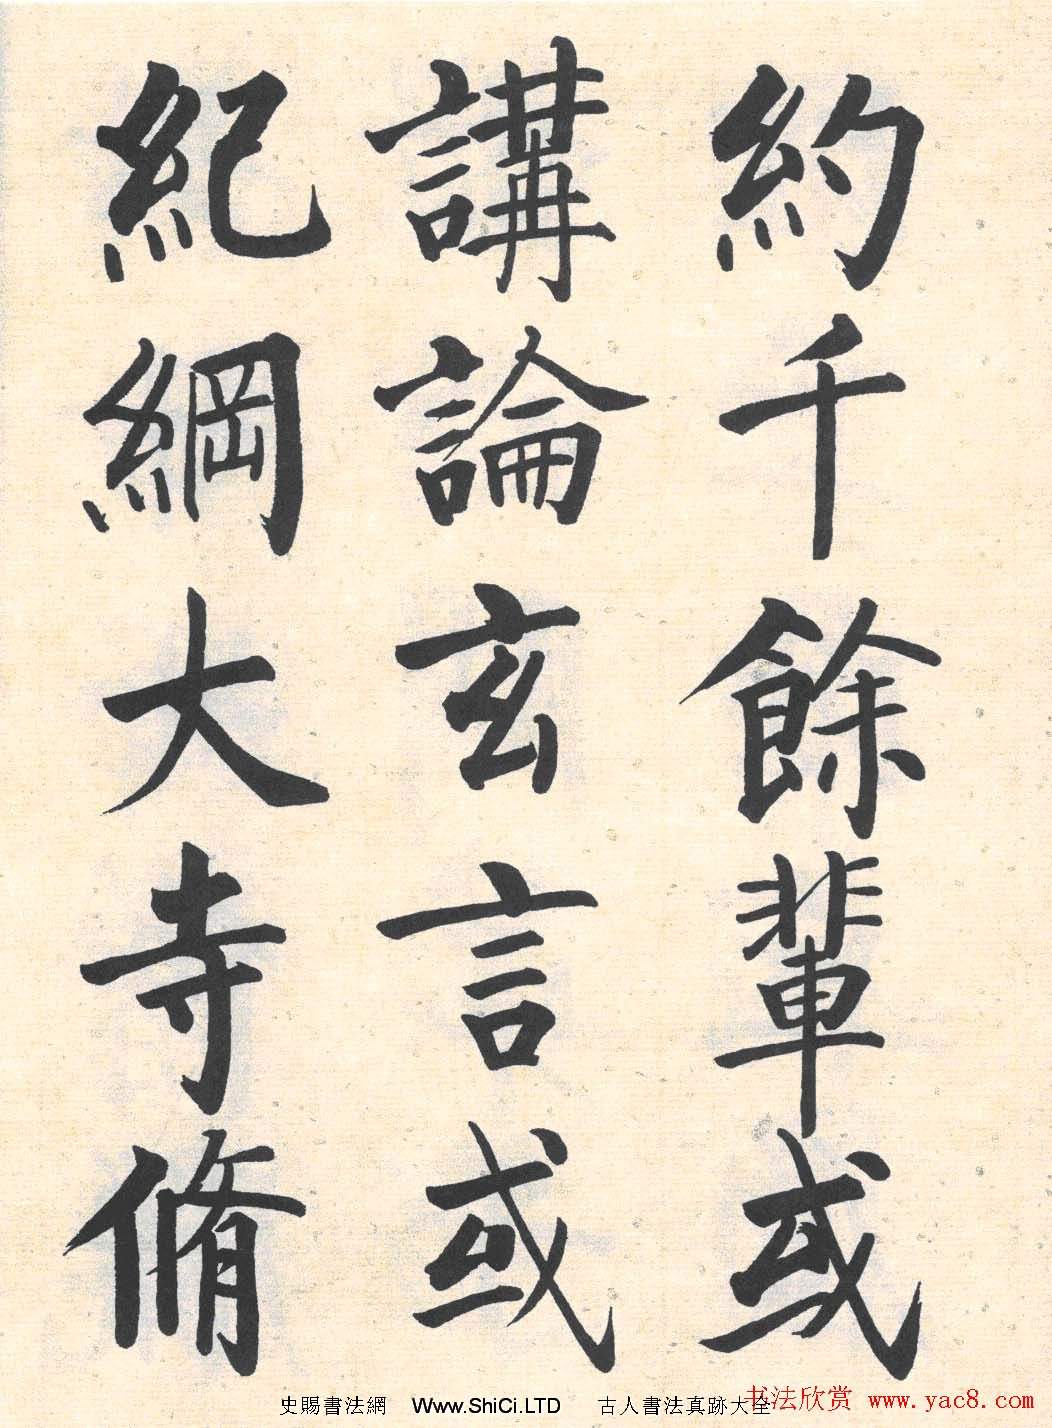 約千餘輩或
講論玄言或
紀綱大寺脩
史賜書法網 Www.ShiCi.LTD 古人書法真跡大全
书法欣赏 www.yac8.com